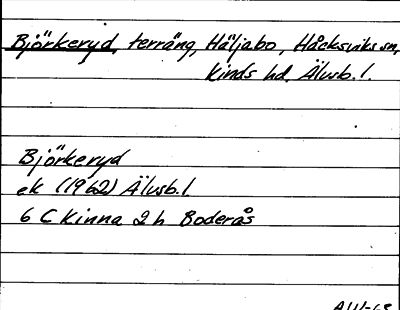 Björkeryd, terräng, Häljabo, Håcksviks sn,
Kinds hd. Älvsb. l.
Björkeryd
ek (1962) Älvsb. l
6 C Kinna 2 h Boderås